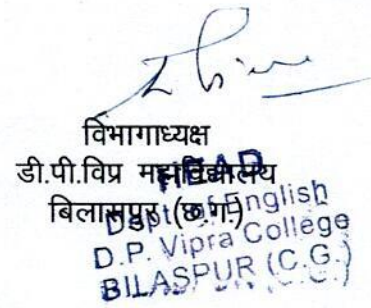 विभागाध्यक्ष
डी.पी.विप्र महाविद्यालय
बिलासपुर (छ.ग.)
HEAD
Deptt. of English
D.P. Vipra College
BILASPUR (C.G.)